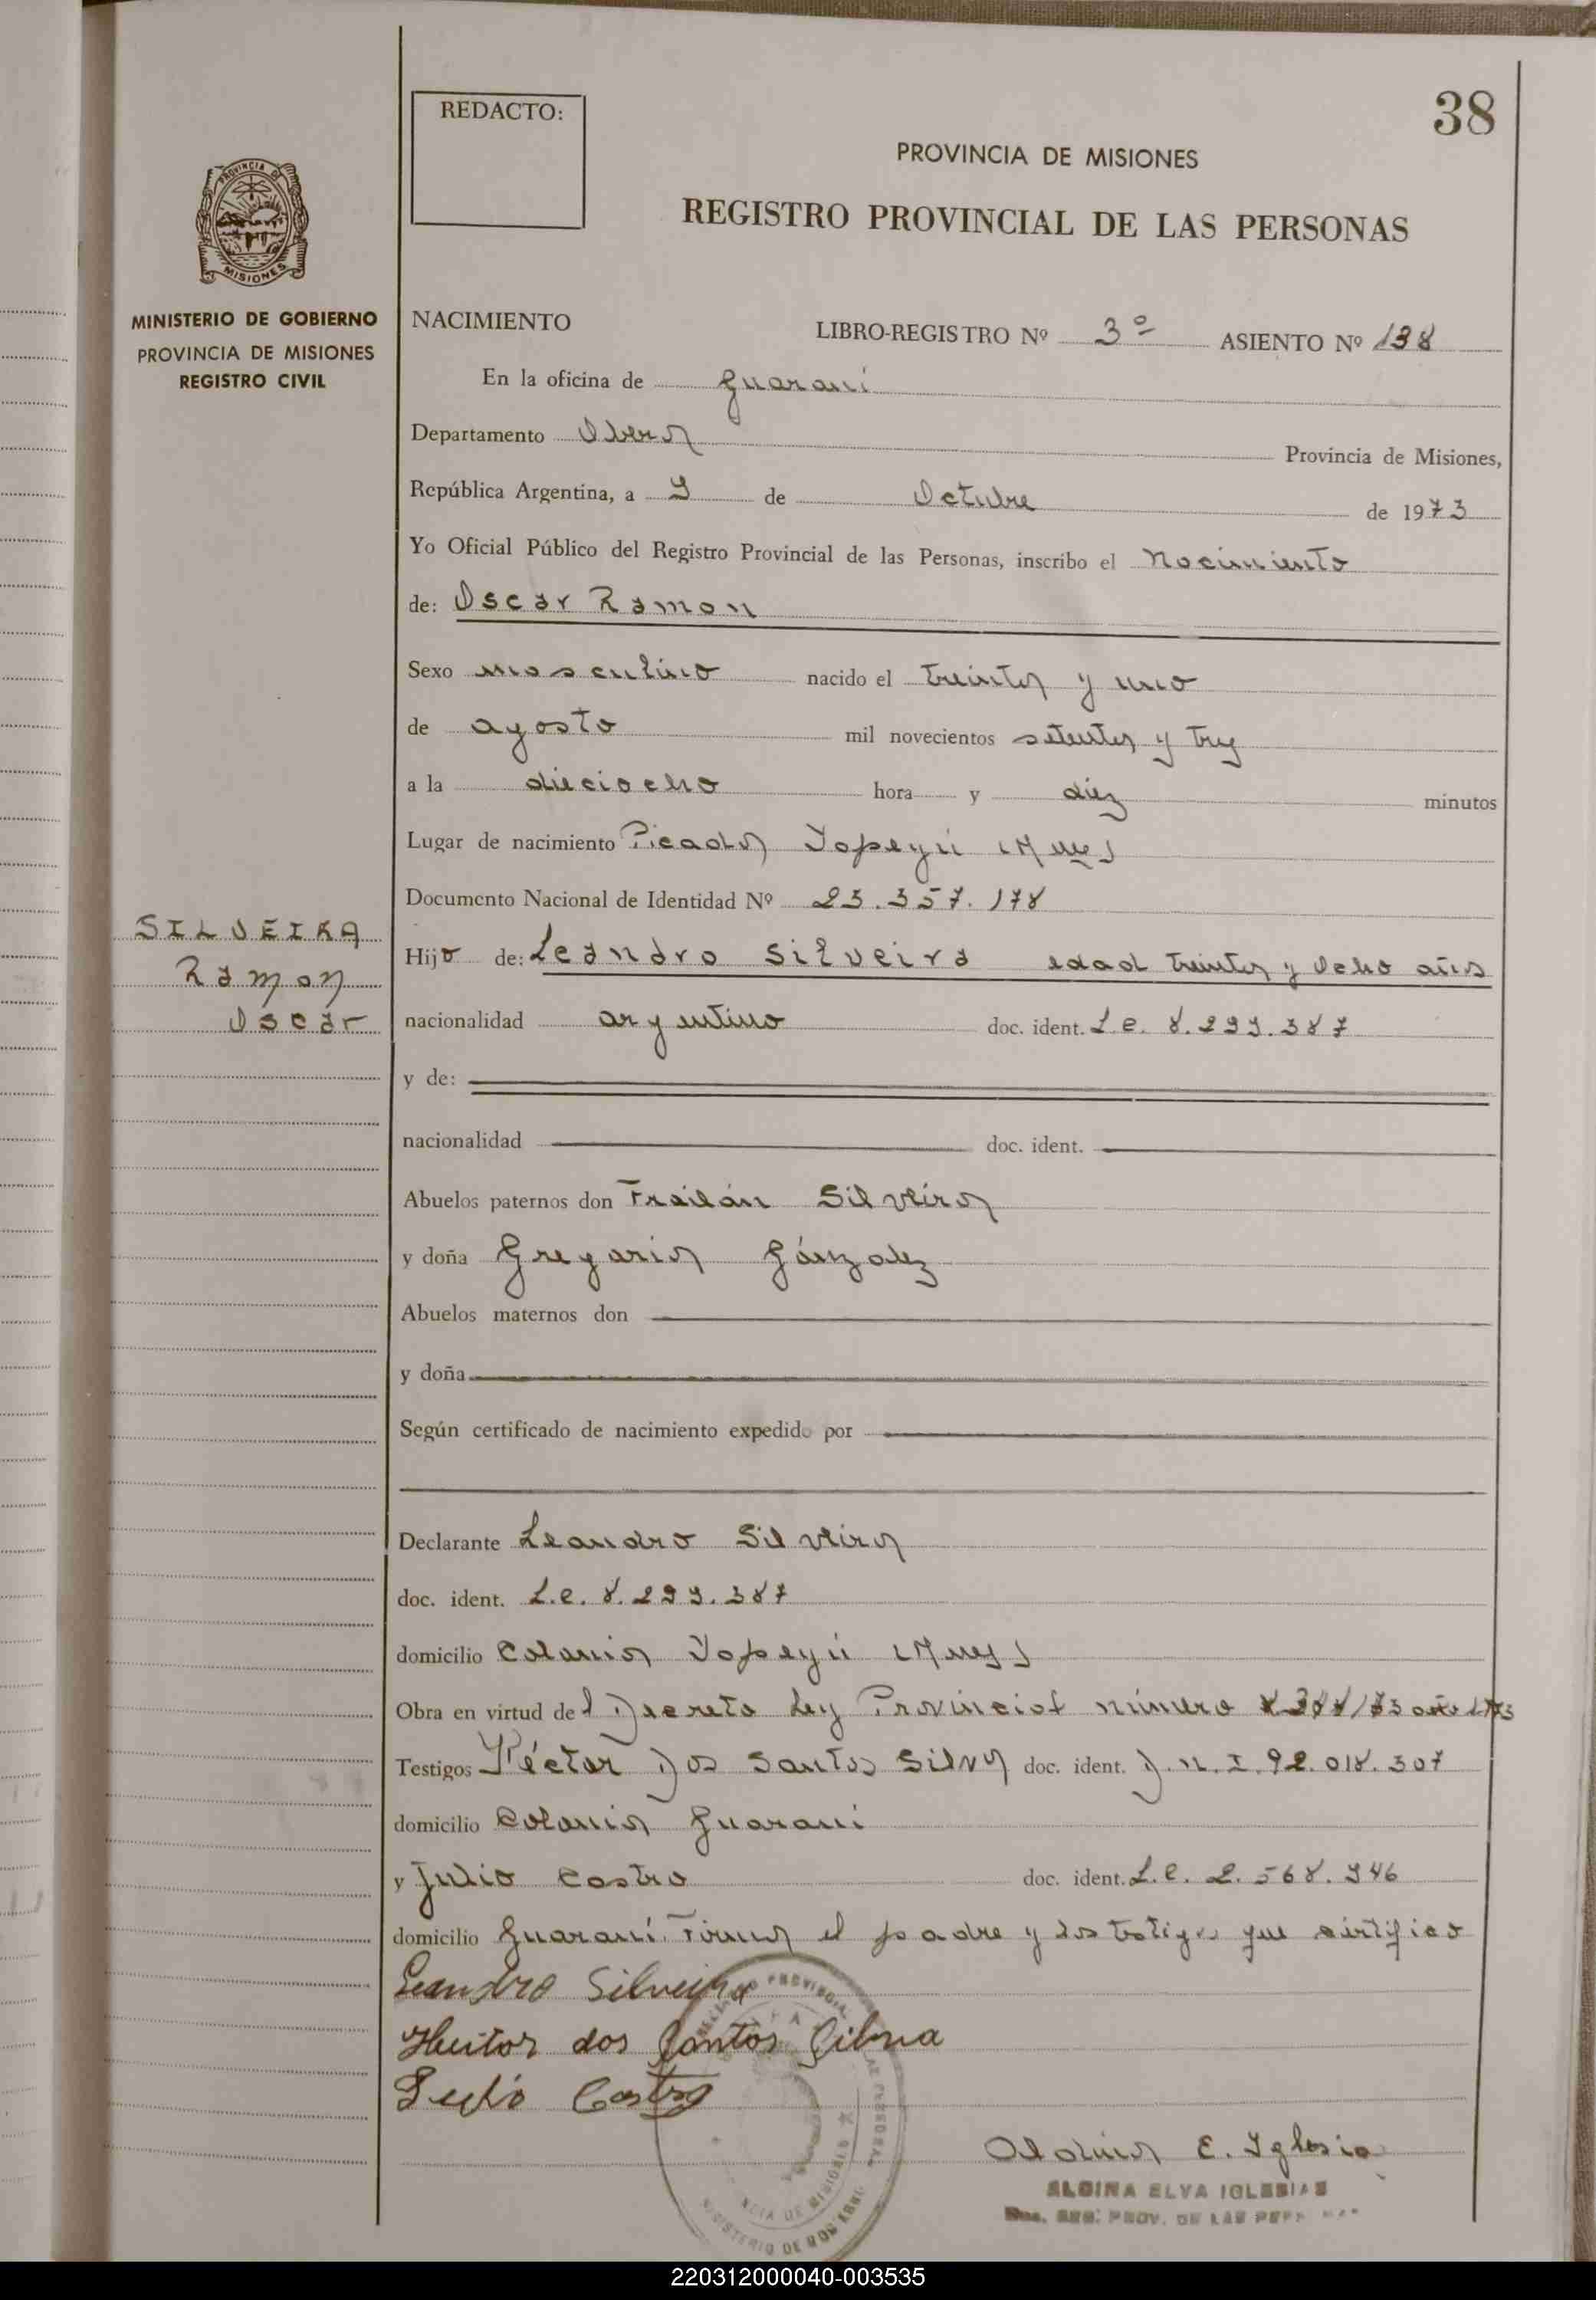 38
REDACTO:
PROVINCIA DE MISIONES
REGISTRO PROVINCIAL DE LAS PERSONAS
PROVINCIA DE
MISIONES
MINISTERIO DE GOBIERNO
PROVINCIA DE MISIONES
REGISTRO CIVIL
NACIMIENTO LIBRO-REGISTRO Nº 3º ASIENTO Nº 138
En la oficina de Guaraní
Departamento Oberá
Provincia de Misiones,
República Argentina, a 9 de Octubre de 1973
Yo Oficial Público del Registro Provincial de las Personas, inscribo el Nacimiento
de: Oscar Ramon
Sexo masculino nacido el treinta y uno
de agosto mil novecientos setenta y tres
a la dieciocho hora y diez minutos
Lugar de nacimiento Picada Yapeyú (Mnes)
Documento Nacional de Identidad Nº 23.357.178
SILVEIRA
Ramon
Oscar
Hijo de: Leandro Silveira edad treinta y ocho años
nacionalidad argentino doc. ident. L.e. 8.299.387
y de:
nacionalidad doc. ident.
Abuelos paternos don Froilán Silveira
y doña Gregoria Gónzalez
Abuelos maternos don
y doña
Según certificado de nacimiento expedido por
Declarante Leandro Silveira
doc. ident. L.e. 8.299.387
domicilio Colonia Yapeyú (Mnes)
Obra en virtud del Decreto Ley Provincial número año 1973
Testigos Héctor Dos Santos Silva doc. ident. D.N.I. 92.018.307
domicilio Colonia Guaraní
y Julio Castro doc. ident. L.e. 2.568.946
domicilio Guaraní. Firma el padre y los testigos que certifico
Leandro Silveira
Heitor dos Santos Silva
Julio Castro
Aldina E. Iglesia
ALDINA ELVA IGLESIAS
REG. PROV. DE LAS
220312000040-003535